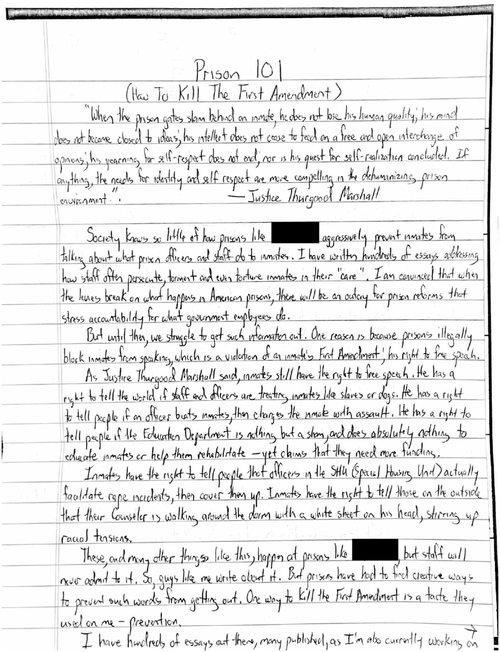 Prison 101
(How To Kill The First Amendment)
"When the prison gates slam behind an inmate, he does not lose his human quality; his mind
does not become closed to ideas; his intellect does not cease to feed on a free and open interchange of
opinions; his yearning for self-respect does not end; nor is his quest for self-realization concluded. If
anything, the needs for identity and self respect are more compelling in the dehumanizing prison
environment..
— Justice Thurgood Marshall
Society knows so little of how prisons like aggressively prevent inmates from
talking about what prison officers and staff do to inmates. I have written hundreds of essays addressing
how staff often persecute, torment and even torture inmates in their "care". I am convinced that when
the levees break on what happens in American prisons, there will be an outcry for prison reforms that
stress accountability for what government employees do.
But until then, we struggle to get such information out. One reason is because prisons illegally
block inmates from speaking, which is a violation of an inmate's First Amendment; his right to free speech.
As Justice Thurgood Marshall said, inmates still have the right to free speech. He has a
right to tell the world if staff and officers are treating inmates like slaves or dogs. He has a right
to tell people if an officer beats inmates, then charges the inmate with assault. He has a right to
tell people if the Education Department is nothing but a sham, and does absolutely nothing to
educate inmates or help them rehabilitate — yet claims that they need more funding.
Inmates have the right to tell people that officers in the SHU (Special Housing Unit) actually
facilitate rape incidents, then cover them up. Inmates have the right to tell those on the outside
that their Counselor is walking around the dorm with a white sheet on his head, stirring up
racial tensions.
These, and many other things like this, happen at prisons like , but staff will
never admit to it. So, guys like me write about it. But prisons have had to find creative ways
to prevent such words from getting out. One way to kill the First Amendment is a tactic they
used on me – prevention.
I have hundreds of essays out there, many published, as I'm also currently working on